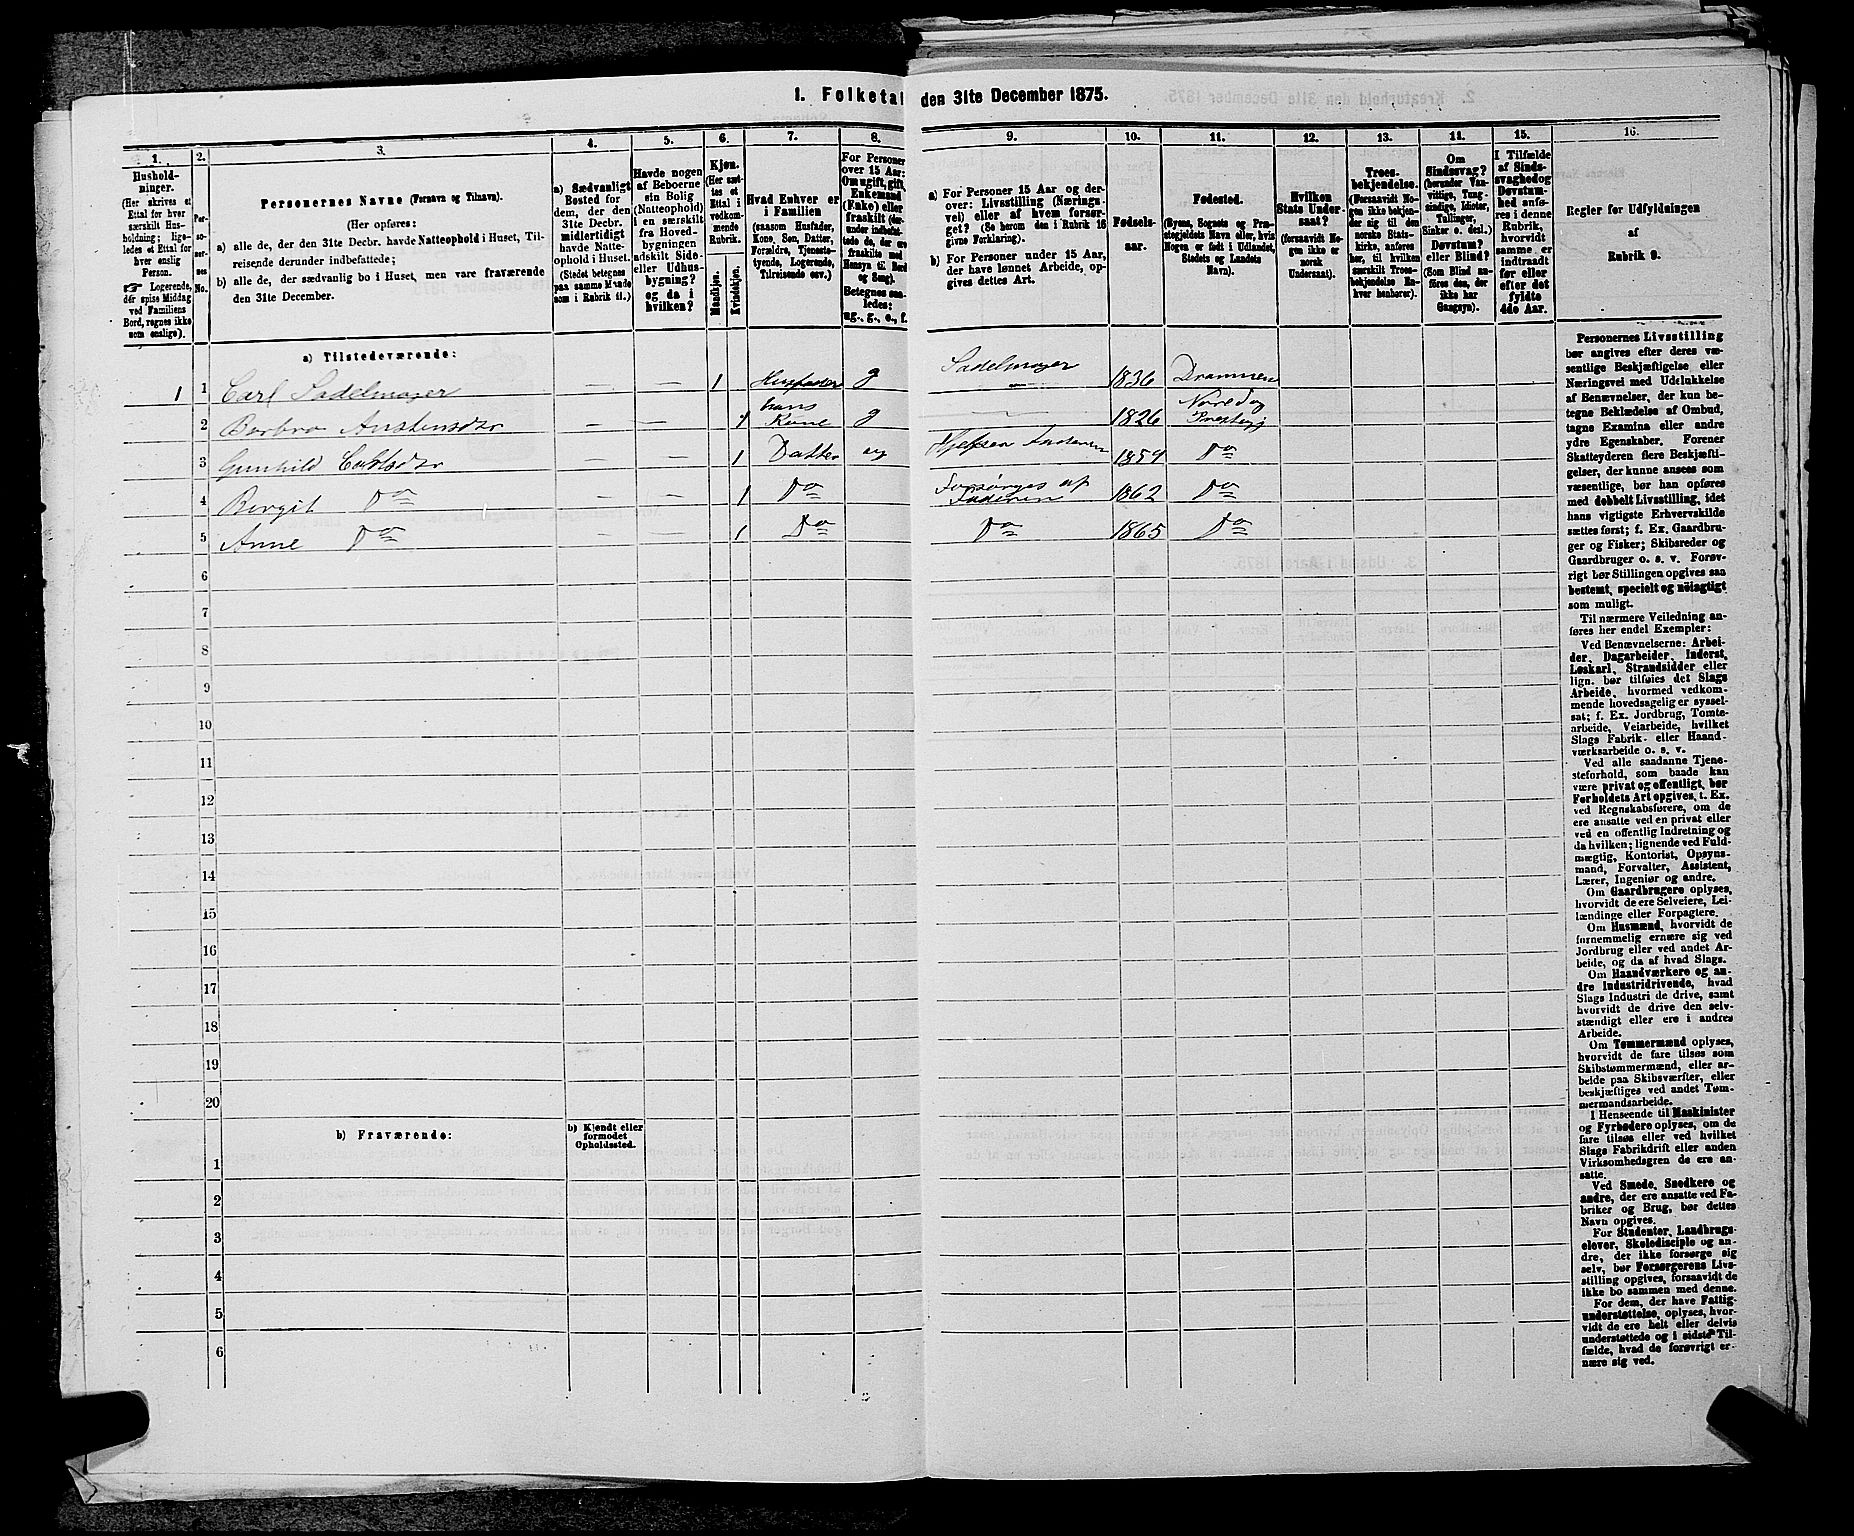 1. Folketal den 31te December 1875.
1.
Hushold-
ninger.
(Her skrives et
Ettal for hver
særskilt Hus-
holdning; lige-
ledes et Ettal for
hver enslig
Person.
☞ Logerende,
der spise Middag
ved Familiens
Bord, regnes ikke
som enslige).
2.
Per-
so-
ner-
nes
No.
3.
Personernes Navne (Fornavn og Tilnavn).
(Her opføres:
a) alle de, der den 31te Decbr. havde Natteophold i Huset, Til-
reisende derunder indbefattede;
b) alle de, der sædvanlig bo i Huset, men vare fraværende
den 31te December.
4.
a) Sædvanligt
Bosted for
dem, der den
31te Decbr.
midlertidigt
havde Natte-
ophold i Huset.
(Stedet betegnes
paa samme Maade
som i Rubrik 11.)
5.
Havde nogen
af Beboerne
sin Bolig
(Natteophold)
i en særskilt
fra Hoved-
bygningen
adskilt Side-
eller Udhus-
bygning?
og da i
hvilken?
6.
Kjøn.
(Her sæt-
tes et
Ettal i
vedkom-
mende
Rubrik.
Mandkjøn.
Kvindekjøn.
7.
Hvad Enhver er
i Familien
(saasom Husfader,
Kone, Søn, Datter,
Forældre, Tjeneste-
tyende, Logerende,
Tilreisende osv.)
8.
For Personer
over 15 Aar:
Om ugift, gift,
Enkemand
(Enke) eller
fraskilt
Hensyn til Bord
og Seng).
Betegnes saa-
ledes:
ug., g., e., f.
9.
a) For Personer 15 Aar og der-
over: Livsstilling (Nærings-
vei) eller af hvem forsør-
get? (Se herom den i Rubrik 16
givne Forklaring).
b) For Personer under 15 Aar,
der have lønnet Arbeide, op-
gives dettes Art.
10.
Fødsels-
aar.
11.
Fødested.
(Byens, Sognets og Præ-
stegjeldets Navn eller, hvis
Nogen er født i Udlandet,
Stedets og Landets
Navn).
12.
Hvilken
Stats Under-
saat?
(forsaavidt No-
gen ikke er
norsk
Undersaat).
13.
Troes-
bekjendelse.
(Forsaavidt No-
gen ikke bekjen-
der sig til den
norske Stats-
kirke, anføres
her, til hvilken
særskilt Troes-
bekjendelse En-
hver henhører).
14.
Om
Sindssvag?
(herunder Van-
vittige, Tung-
sindige, Idioter,
Tullinger,
Sinker o. desl.)
Døvstum?
eller Blind?
(Som Blind an-
føres den, der
ikke har
Gangsyn).
15.
I Tilfælde
af Sinds-
svaghed og
Døvstum-
hed anfø-
res i denne
Rubrik,
hvorvidt
samme er
indtraadt
før eller
efter det
fyldte
4de Aar.
16.
Regler for Udfyldningen
af
Rubrik 9.
a) Tilstedeværende:
1 1 Carl Sadelmager — — 1 Husfader g Sadelmager — 1836 Drammen
2 Barbro Austensdtr — — 1 hans Kone g — 1826
3 Gunhild Carlsdtr — — 1 Datter ug 1854 Do
4 Bergit Do — — 1 Do Forsørges af Faderen 1862 Do
5 Anne Do — — 1 Do Do 1865 Do
6
7
8
9
10
11
12
13
14
15
16
17
18
19
20
b) Fraværende:
b) Kjendt eller
formodet
Opholdssted.
1
2
3
4
5
6
Personernes Livsstilling
bør angives efter deres væ-
sentlige Beskjæftigelse eller
Næringsvei med Udelukkelse
af Benævnelser, der kun be-
tegne Beklædelse af Ombud,
tagne Examina eller andre
ydre Egenskaber. Forener
Skatteyderen flere Beskjæfti-
gelser, der kunne ansees som
væsentlige, bør han opføres
med dobbelt Livsstilling, idet
hans vigtigste Erhvervskilde
sættes først; f. Ex. Gaardbru-
ger og Fisker; Skibsreder og
Gaardbruger o. s. v. Forøv-
rigt bør Stillingen opgives saa
bestemt, specielt og nöiagtigt
som muligt.
Til nærmere Veiledning an-
føres her endel Exempler:
Ved Benævnelserne: Arbei-
der, Dagarbeider, Inderst,
Løskarl, Strandsidder eller
lign. bør tilføies det Slags
Arbeide, hvormed vedkom-
mende hovedsagelig er syssel-
sat; f. Ex. Jordbrug, Tomte-
arbeide, Veiarbeide, hvilket
Slags Fabrik- eller Haand-
værksarbeide o. s. v.
Ved alle saadanne Tjene-
steforhold, som baade kan
være privat og offentligt, bør
Forholdets Art opgives, t. Ex.
ved Regnskabsførere, om de
ere ansatte ved en privat eller
ved en offentlig Indretning og
da hvilken; lignende ved Fuld-
mægtig, Kontorist, Opsyns-
mand, Forvalter, Assistent,
Lærer, Ingeniør og andre.
Om Gaardbrugere oplyses,
hvorvidt de ere Selveiere, Lei-
lændinge eller Forpagtere.
Om Husmænd, hvorvidt de
fornemmelig ernære sig ved
Jordbrug eller ved andet Ar-
beide, og da af hvad Slags.
Om Haandværkere og an-
dre Industridrivende, hvad
Slags Industri de drive, samt
hvorvidt de drive den selv-
stændigt eller ere i andres
Arbeide.
Om Tømmermænd oplyses,
hvorvidt de fare tilsøs som
Skibstømmermænd, eller ar-
beide paa Skibsværfter, eller
beskjæftiges ved andet Tøm-
mermandsarbeide.
I Henseende til Maskinister
og Fyrbødere oplyses, om de
fare tilsøs eller ved hvilket
Slags Fabrikdrift eller anden
Virksomhedsgren de ere an-
satte.
Ved Smede, Snedkere og
andre, der ere ansatte ved Fa-
briker og Brug, bør dettes
Navn opgives.
For Studenter, Landbrugs-
elever, Skoledisciple og an-
dre, der ikke forsørge sig
selv, bør Forsørgerens Livs-
stilling opgives, forsaavidt de
ikke bo sammen med denne.
For dem, der have Fattig-
understøttelse, oplyses, hvor-
vidt de ere helt eller delvis
understøttede og i sidste Til-
fælde, hvad de forøvrigt er-
nære sig ved.